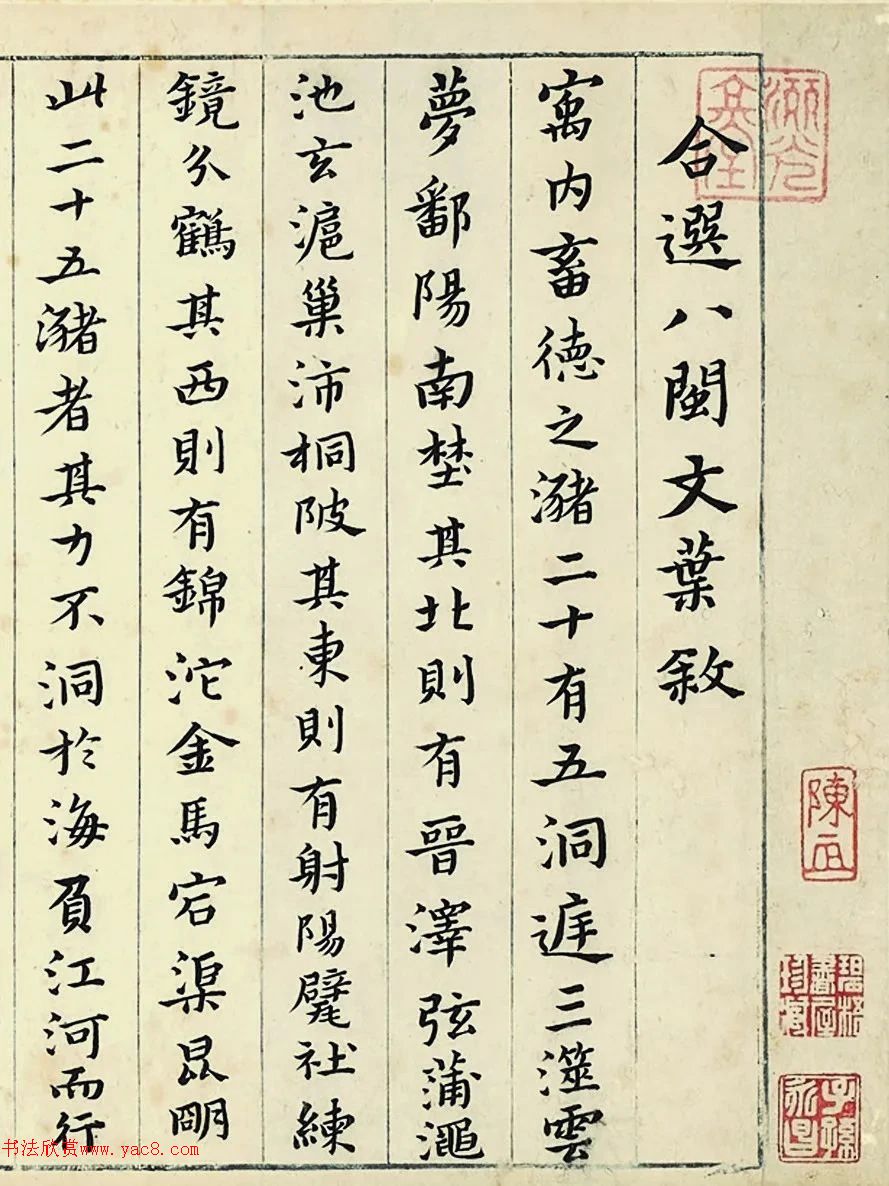 合選八閩文葉敘
寓内畜德之瀦二十有五洞庭三澨雲
夢鄱陽南埜其北則有晉澤弦蒲澠
池玄滬巢沛桐陂其東則有射陽甓社練
鏡分鶴其西則有錦沱金馬宕渠昆明
此二十五瀦者其力不洞於海負江河而行
陳
子孫
永昌
书法欣赏www.yac8.com